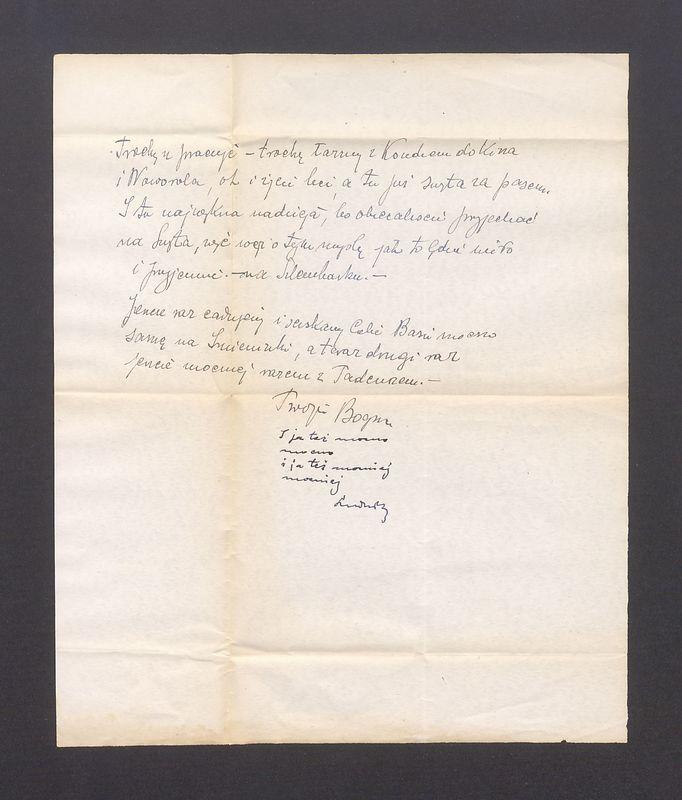 Trochę pracuję – trochę łażę z Kondrem do kina
i Noworola, ot i życie leci, a tu już święta za pasem.
I ta największa nadzieja, bo obiecaliście przyjechać
na święta, więc wciąż o tym myślę jak to będzie miło
i przyjemnie. – na –
Jeszcze raz całujemy i ściskamy Cebie Basiu mocno
samą na, a teraz drugi raz
jeszcze mocniej razem z Tadeuszem. –
Twoja Bogna
I ja też mocno
mocno
i ja też mocniej
mocniej
Ludwik